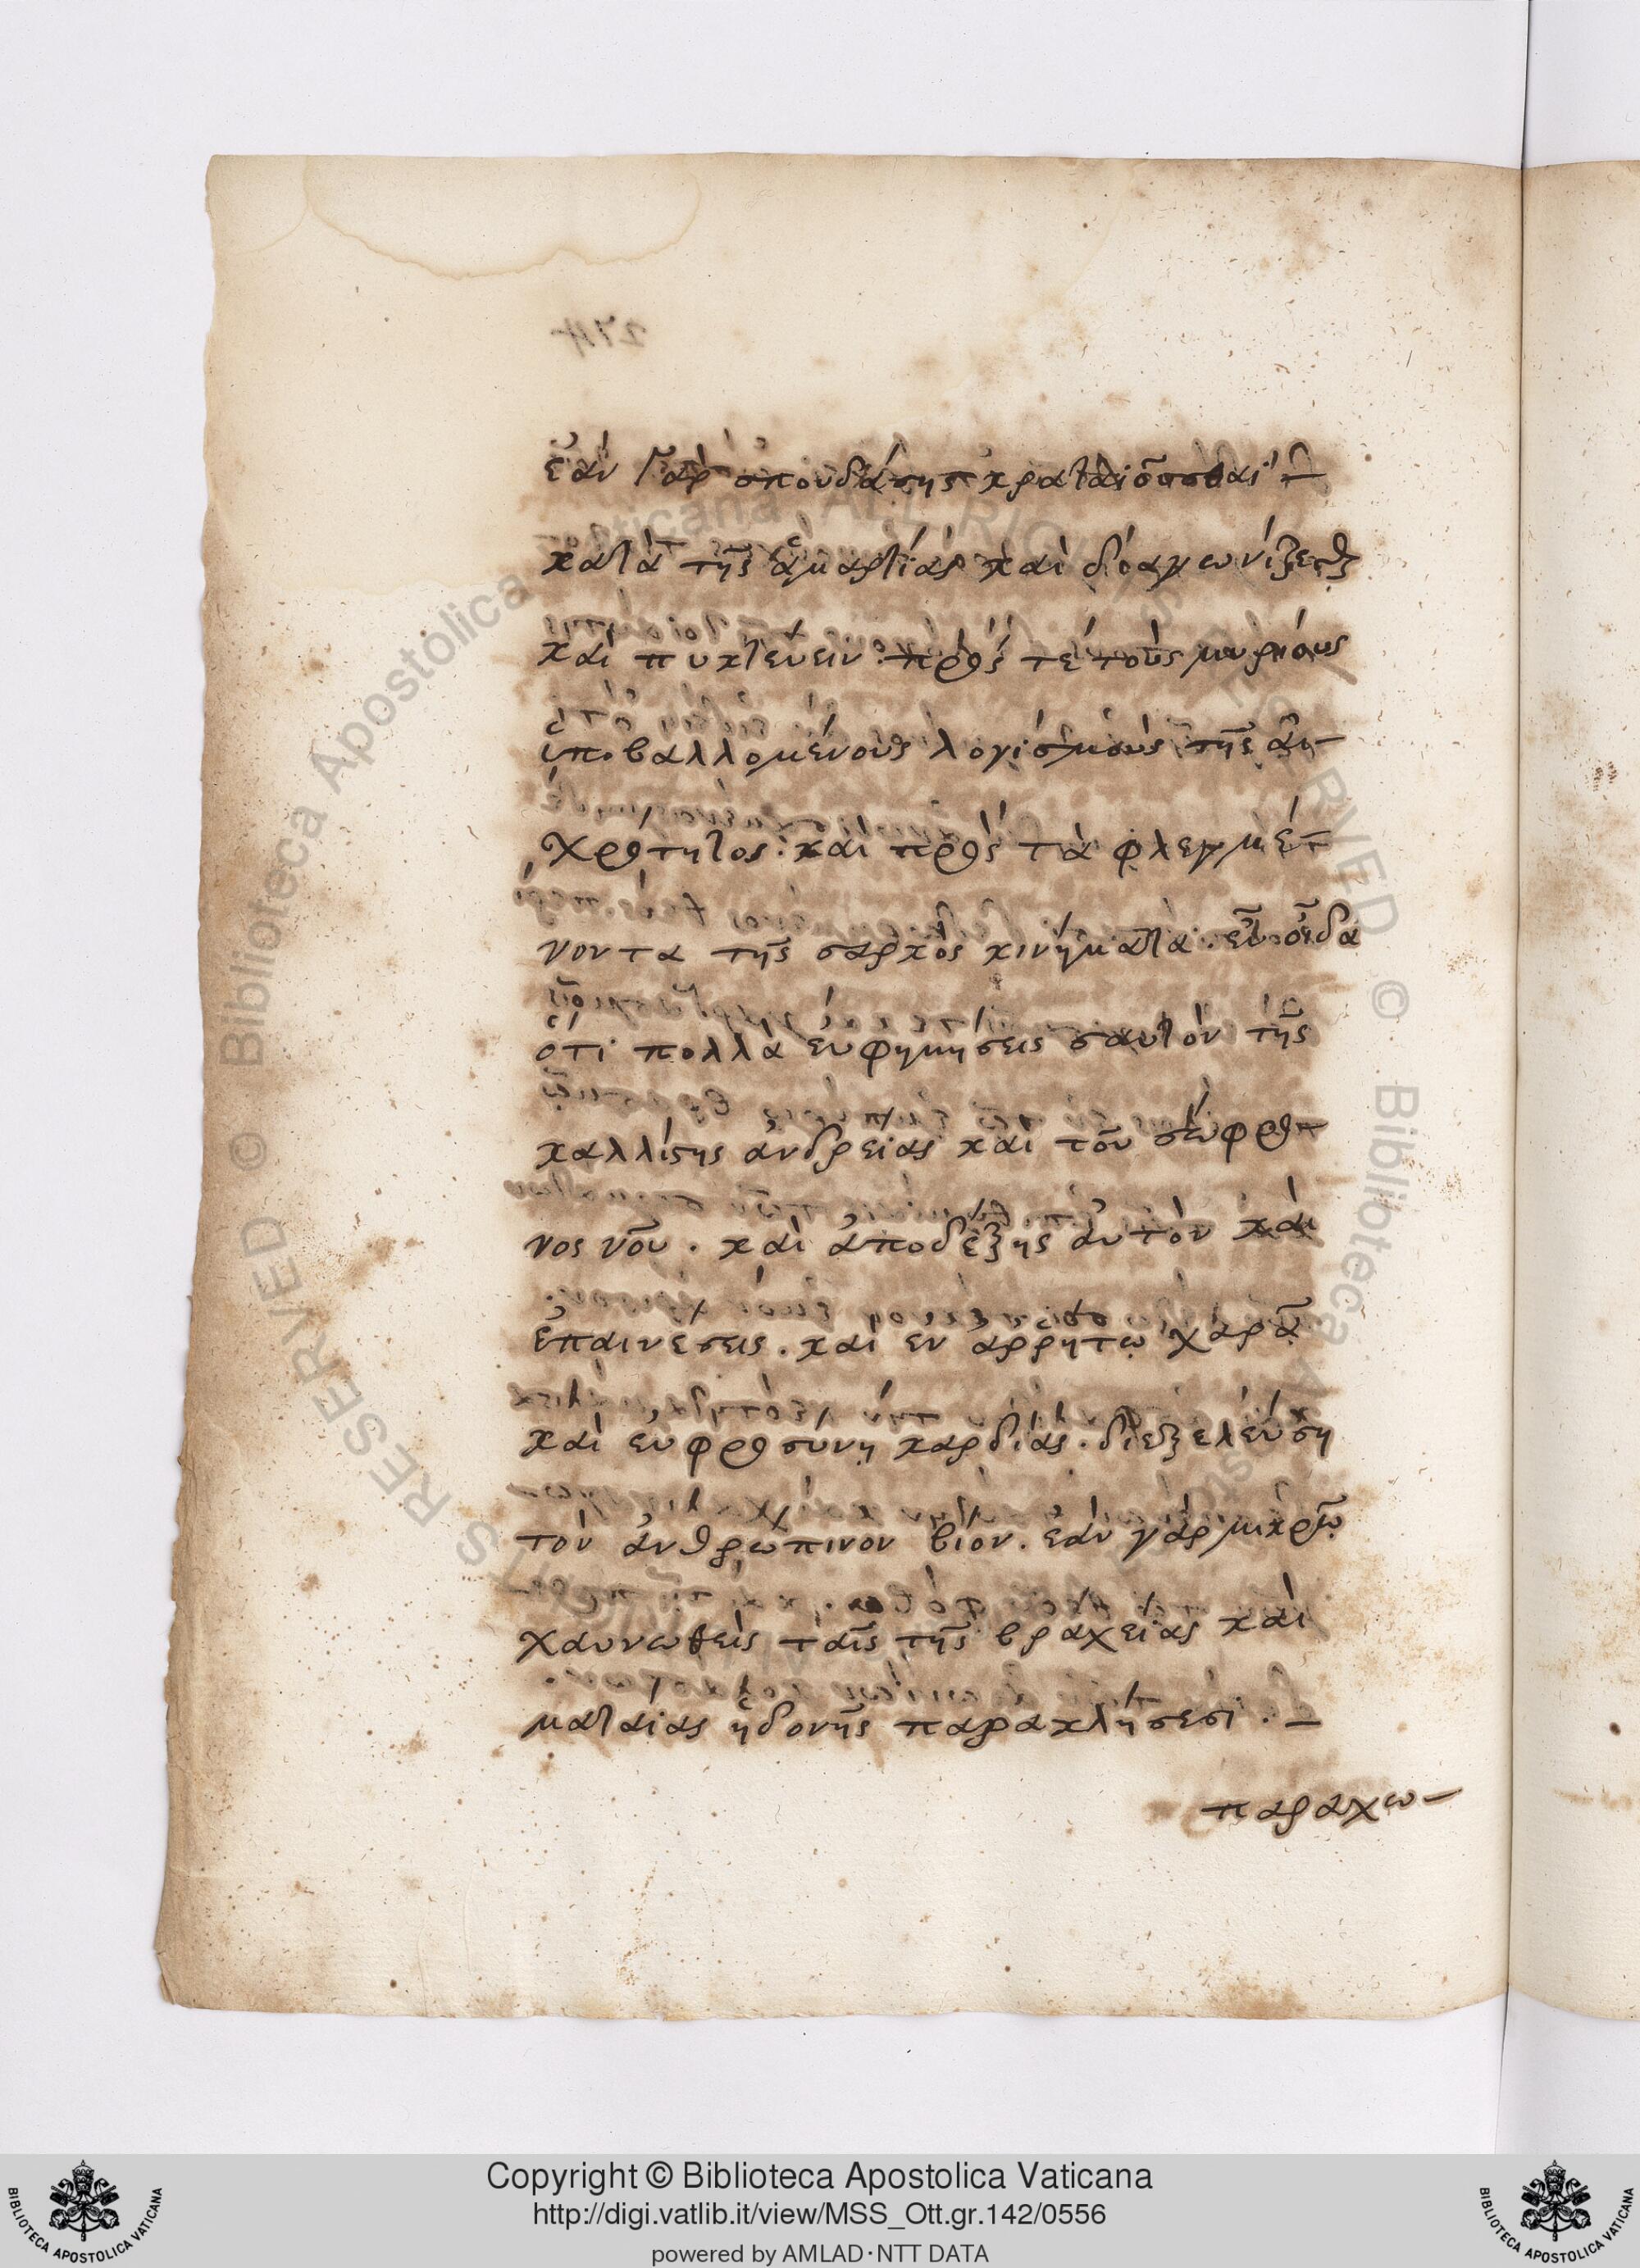 ἐὰν γὰρ σπουδάσης κραταιοῦσθαι
κατὰ τῆς ἁμαρτίας καὶ διαγωνίζεσθαι
καὶ πυκτεύειν. πρὸς τὲ τοὺς μυρίους
ὑποβαλλομένους λογισμοὺς τῆς αἰ-
χρότητος. καὶ πρὸς τὰ φλεγμέ-
νοντα τῆς σαρκὸς κινήματα. εὖ οἶδα
ὅτι πολλὰ ευφημήσεις σαυτὸν τῆς
καλλίστης ἀνδρείας καὶ τοῦ σώφρο-
νος νοῦ. καὶ ἀποδέξης αὐτὸν καὶ
ἐπαινέσεις. καὶ εν ἀρρήτῳ χαρᾷ
καὶ εὐφροσύνῃ καρδίας. διεξελεύση
τὸν ἀνθρώπινον βίον. ἐὰν γὰρ μικρῷ
χαυνωθεὶς ταῖς τῆς βραχείας καὶ
ματαίας ἡδονῆς παρακλήσεσι. –
παραχω-
Copyright © Biblioteca Apostolica Vaticana
http://digi.vatlib.it/view/MSS_Ott.gr.142/0556
powered by AMLAD·NTT DATA
BIBLIOTECA APOSTOLICA VATICANA
BIBLIOTECA APOSTOLICA VATICANA